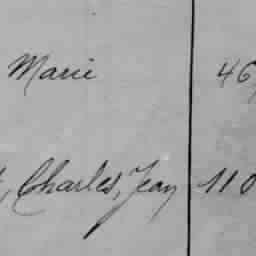 Marie 46
, Charles, Jean 110